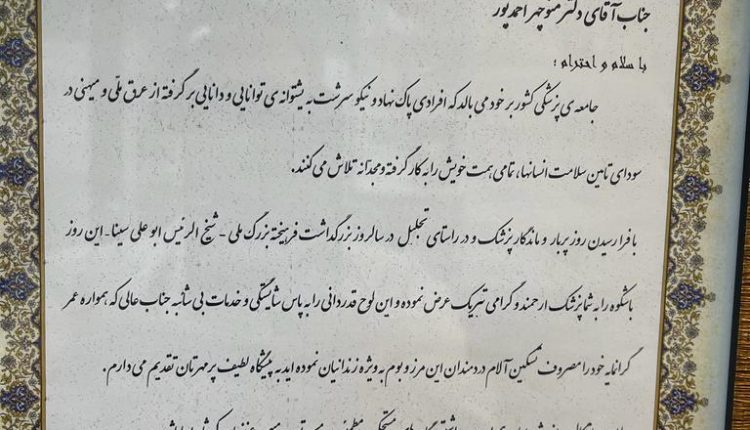 جناب آقای دکتر منوچهر احمدپور
با سلام و احترام ؛
جامعه ی پزشکی کشور بر خود می بالد که افرادی پاک نهاد و نیکو سرشت به پشتوانه ی توانایی و دانایی بر گرفته از عرق ملّی و میهنی در
سودای تامین سلامت انسانها، تمامی همت خویش را به کار گرفته و مجدّانه تلاش می کنند.
با فرا رسیدن روز پربار و ماندگار پزشک و در راستای تجلیل در سالروز بزرگداشت فرهیخته بزرگ ملی - شیخ الرئیس ابو علی سینا - این روز
باشکوه را به شما پزشک ارجمند و گرامی تبریک عرض نموده و این لوح قدردانی را به پاس شایستگی و خدمات بی شائبه جناب عالی که همواره عمر
گرانمایه خود را مصروف تسکین آلام دردمندان این مرز و بوم به ویژه زندانیان نموده اید به پیشگاه لطیف پر مهرتان تقدیم می دارم.